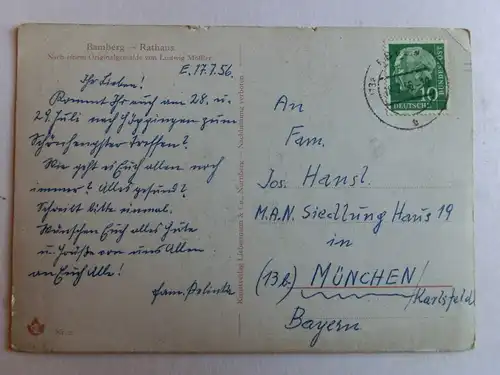 Bamberg — Rathaus
Nach einem Originalgemälde von Ludwig Mößler
E. 17.7.56.
Ihr Lieben!
Kommt Ihr auch am 28. u.
29. Juli nach Göppingen zum
Schönhengster treffen?
Wie geht es Euch allen noch
immer? Alles gesund?
Schreibt bitte einmal.
Wünschen Euch alles Gute
u. Grüße von uns Allen
an Euch Alle!
Fam.
Kunstverlag Liebermann & Co., Nürnberg — Nachahmung verboten
DEUTSCHE BUNDESPOST
10
An
Fam.
Jos. Hansl.
M.A.N. Siedlung Haus 19
in
(13b.) MÜNCHEN/
Karlsfeld
Bayern